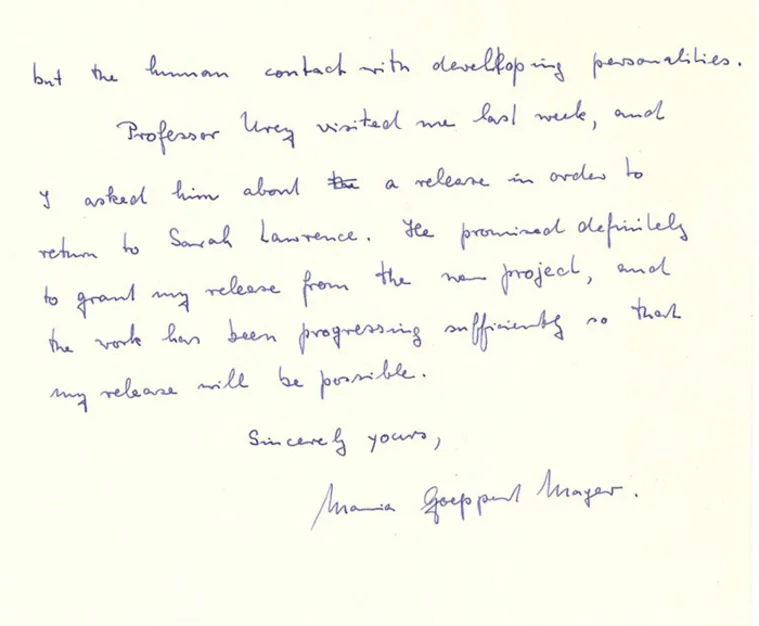 but the human contact with developing personalities.
Professor Urey visited me last week, and
I asked him about the a release in order to
return to Sarah Lawrence. He promised definitely
to grant my release from the war project, and
the work has been progressing sufficiently so that
my release will be possible.
Sincerely yours,
Maria Goeppert Mayer.